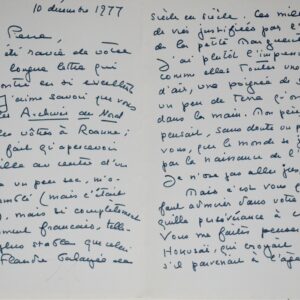 10 décembre 1977
Pena,
été ravie de votre
longue lettre qui
en si excellent
J'aime savoir que vous
Archives du Nord
vôtres à Roanne;
fait qu'apercevoir
ville au centre d'un
un peu sec, m'a-
(mais c'était
mais si complètement
ment français, telle-
plus stable que celui
Flandre
siècle en siècle. Les mille
de vies justifiées par l'
de la petite Marguerite
J'ai plutôt l'impress
comme elles toutes une
d'air, une poignée de
un peu de terre qu'on
dans la main. Mon père
pensait, sans doute ou p
vous, que le monde se j
par la naissance de l'
Je n'ose pas aller jusq
Mais c'est vous q
faut admirer dans votre
quille persévérance à
Vous me faites penser
Hokusaï, qui croyait
s'il parvenait à l'âge